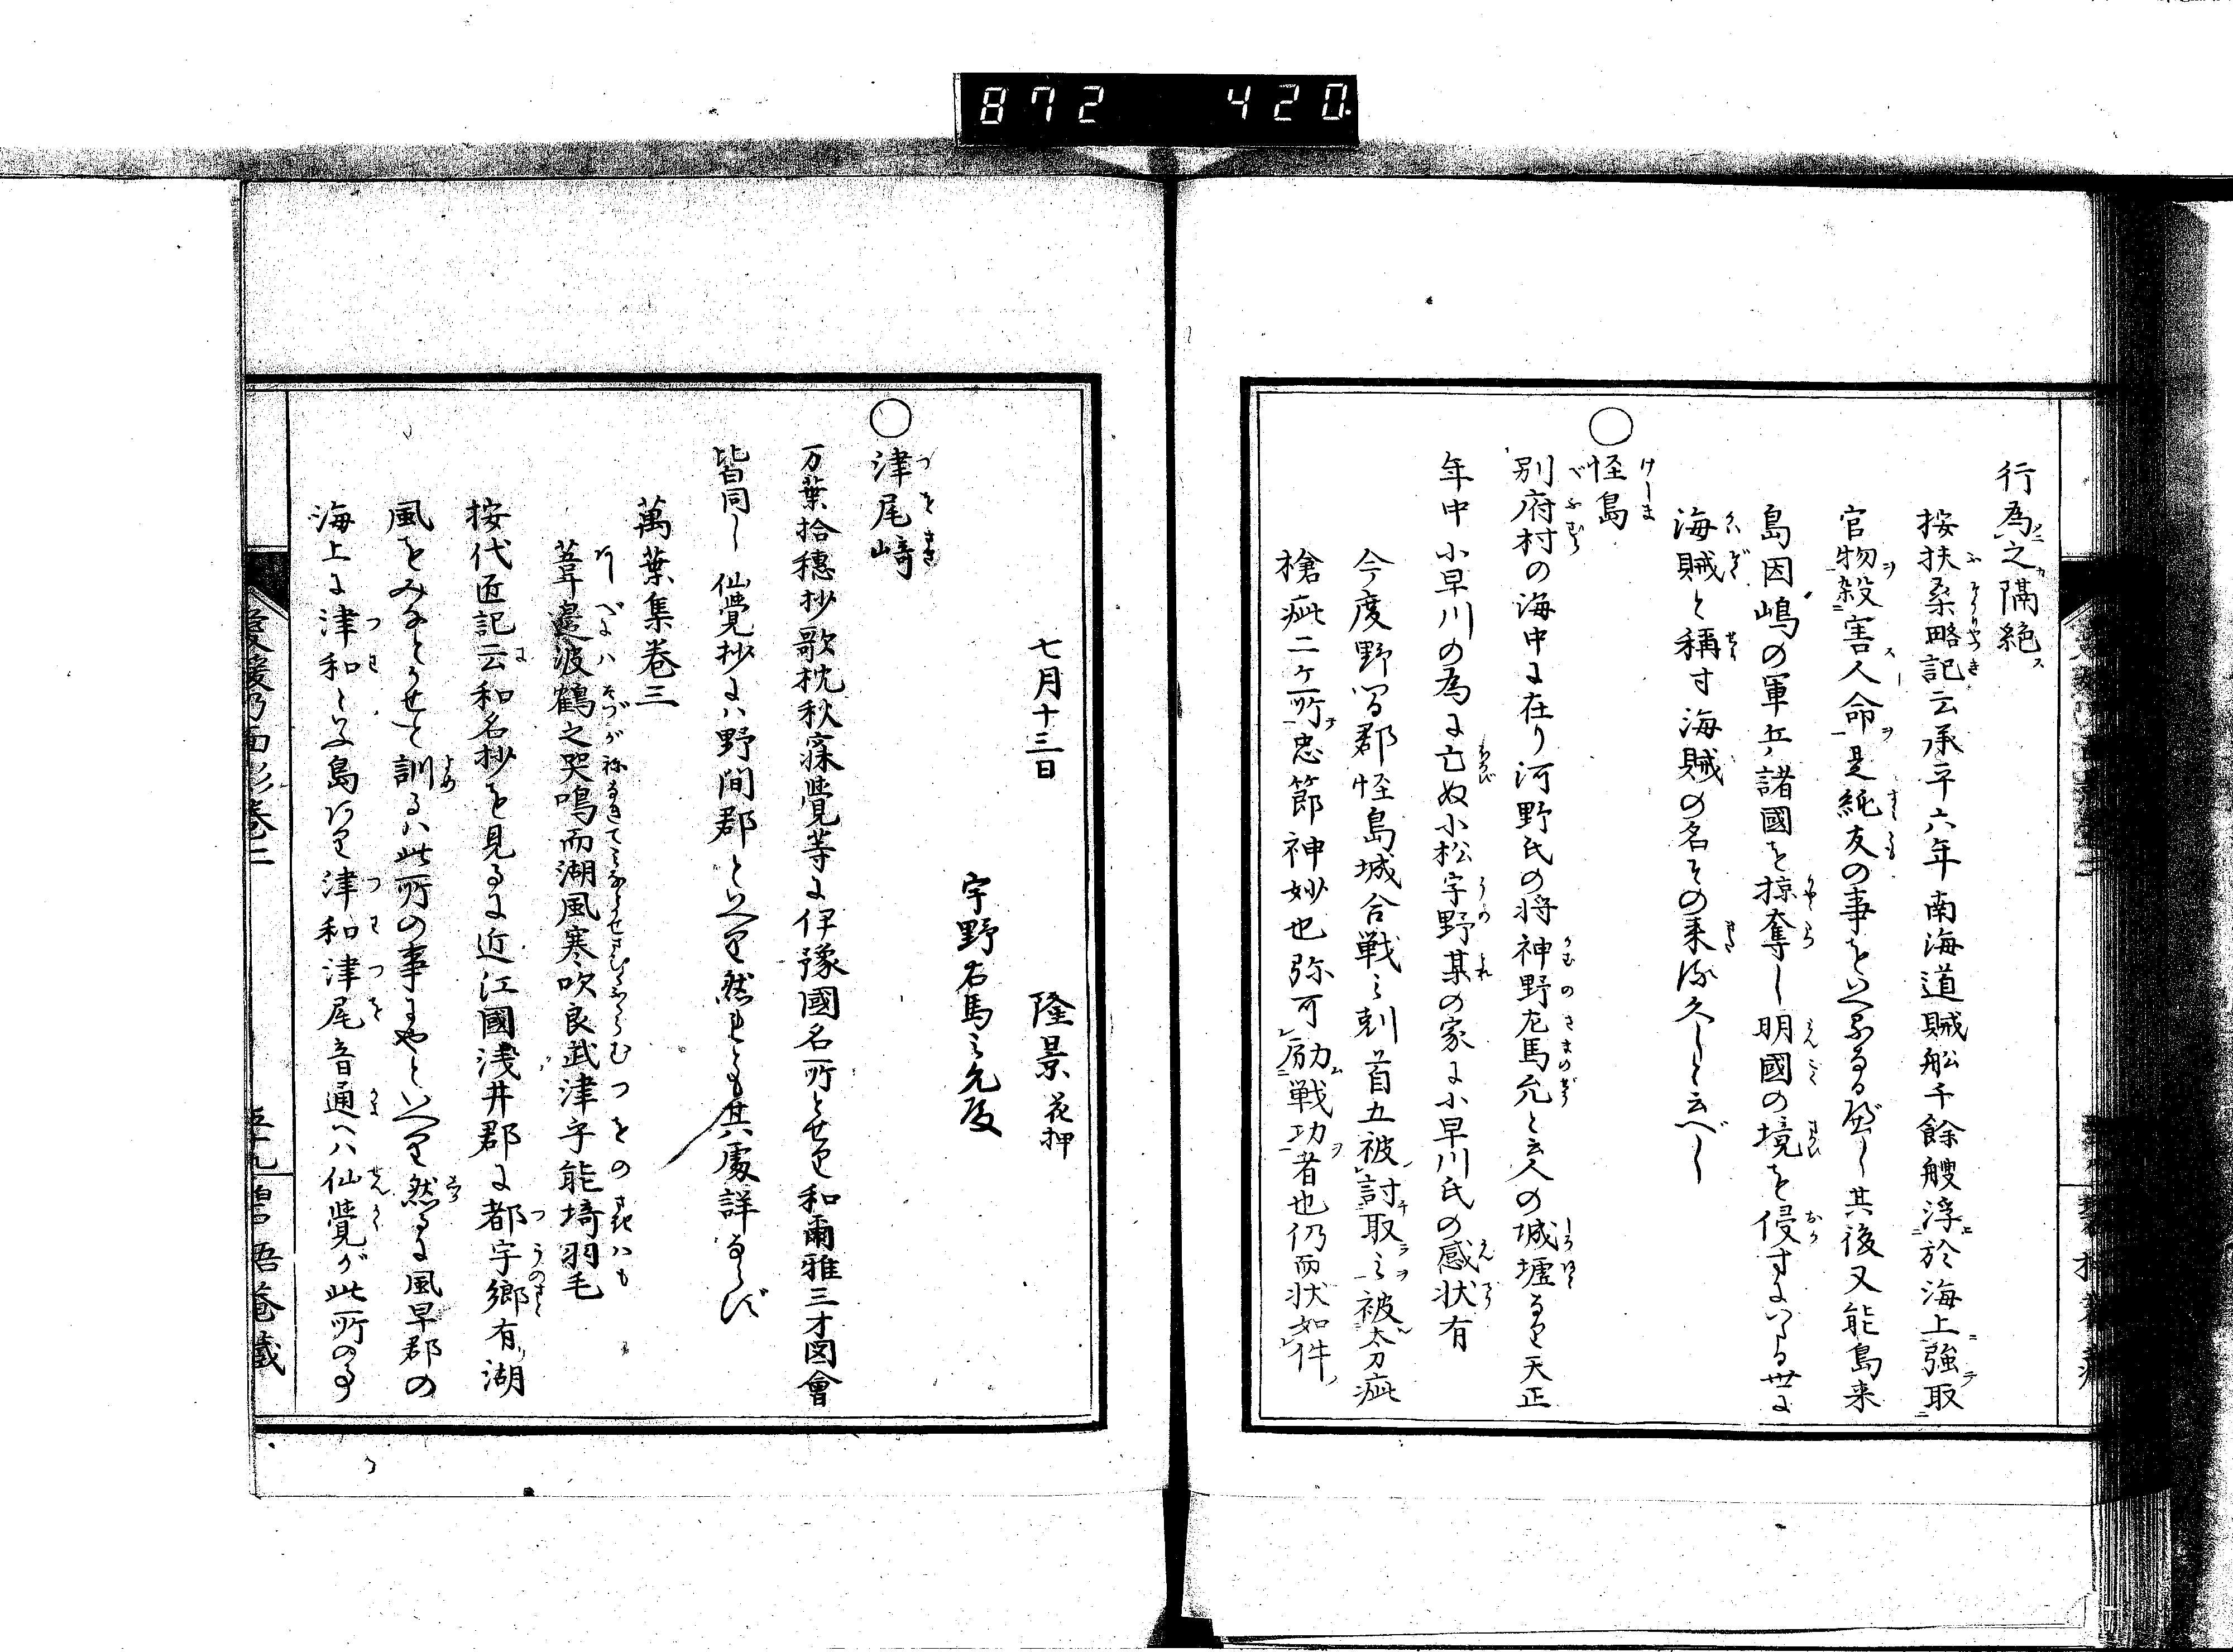 872 420
行為之隔絶
按扶桑略記云承平六年南海道賊舩千餘艘浮於海上強取
官物殺害人命是純友の事をいへるなるべし其後又能島来
島因嶋の軍兵諸國を掠奪し明國の境を侵すにいたる世に
海賊と稱す海賊の名その来流久しと云べし
○怪島
別府村の海中に在り河野氏の将神野左馬允と云人の城墟なり天正
年中小早川の為に亡ぬ小松宇野某の家に小早川氏の感状有
今度野間郡怪島城合戦之刻首五被討取之被太刀疵
槍疵二ケ所忠節神妙也弥可励戦功者也仍而状如件
七月十三日 隆景花押
宇野右馬之允殿
○津尾﨑
万葉拾穗抄歌枕秋寐覺等に伊豫國名所とせり和爾雅三才図會
皆同し仙覺抄にハ野間郡といへり然れとも其處詳ならず
萬葉集巻三
葦邉波鶴之哭鳴而湖風寒吹良武津乎能埼羽毛
按代匠記云和名抄を見るに近江國浅井郡に都宇郷有湖
風をみなとかせと訓るハ此所の事にやといへり然るに風早郡の
海上に津和といふ島あり津和津尾音通へハ仙覺が此所の事
愛媛乃面影巻二
五十九